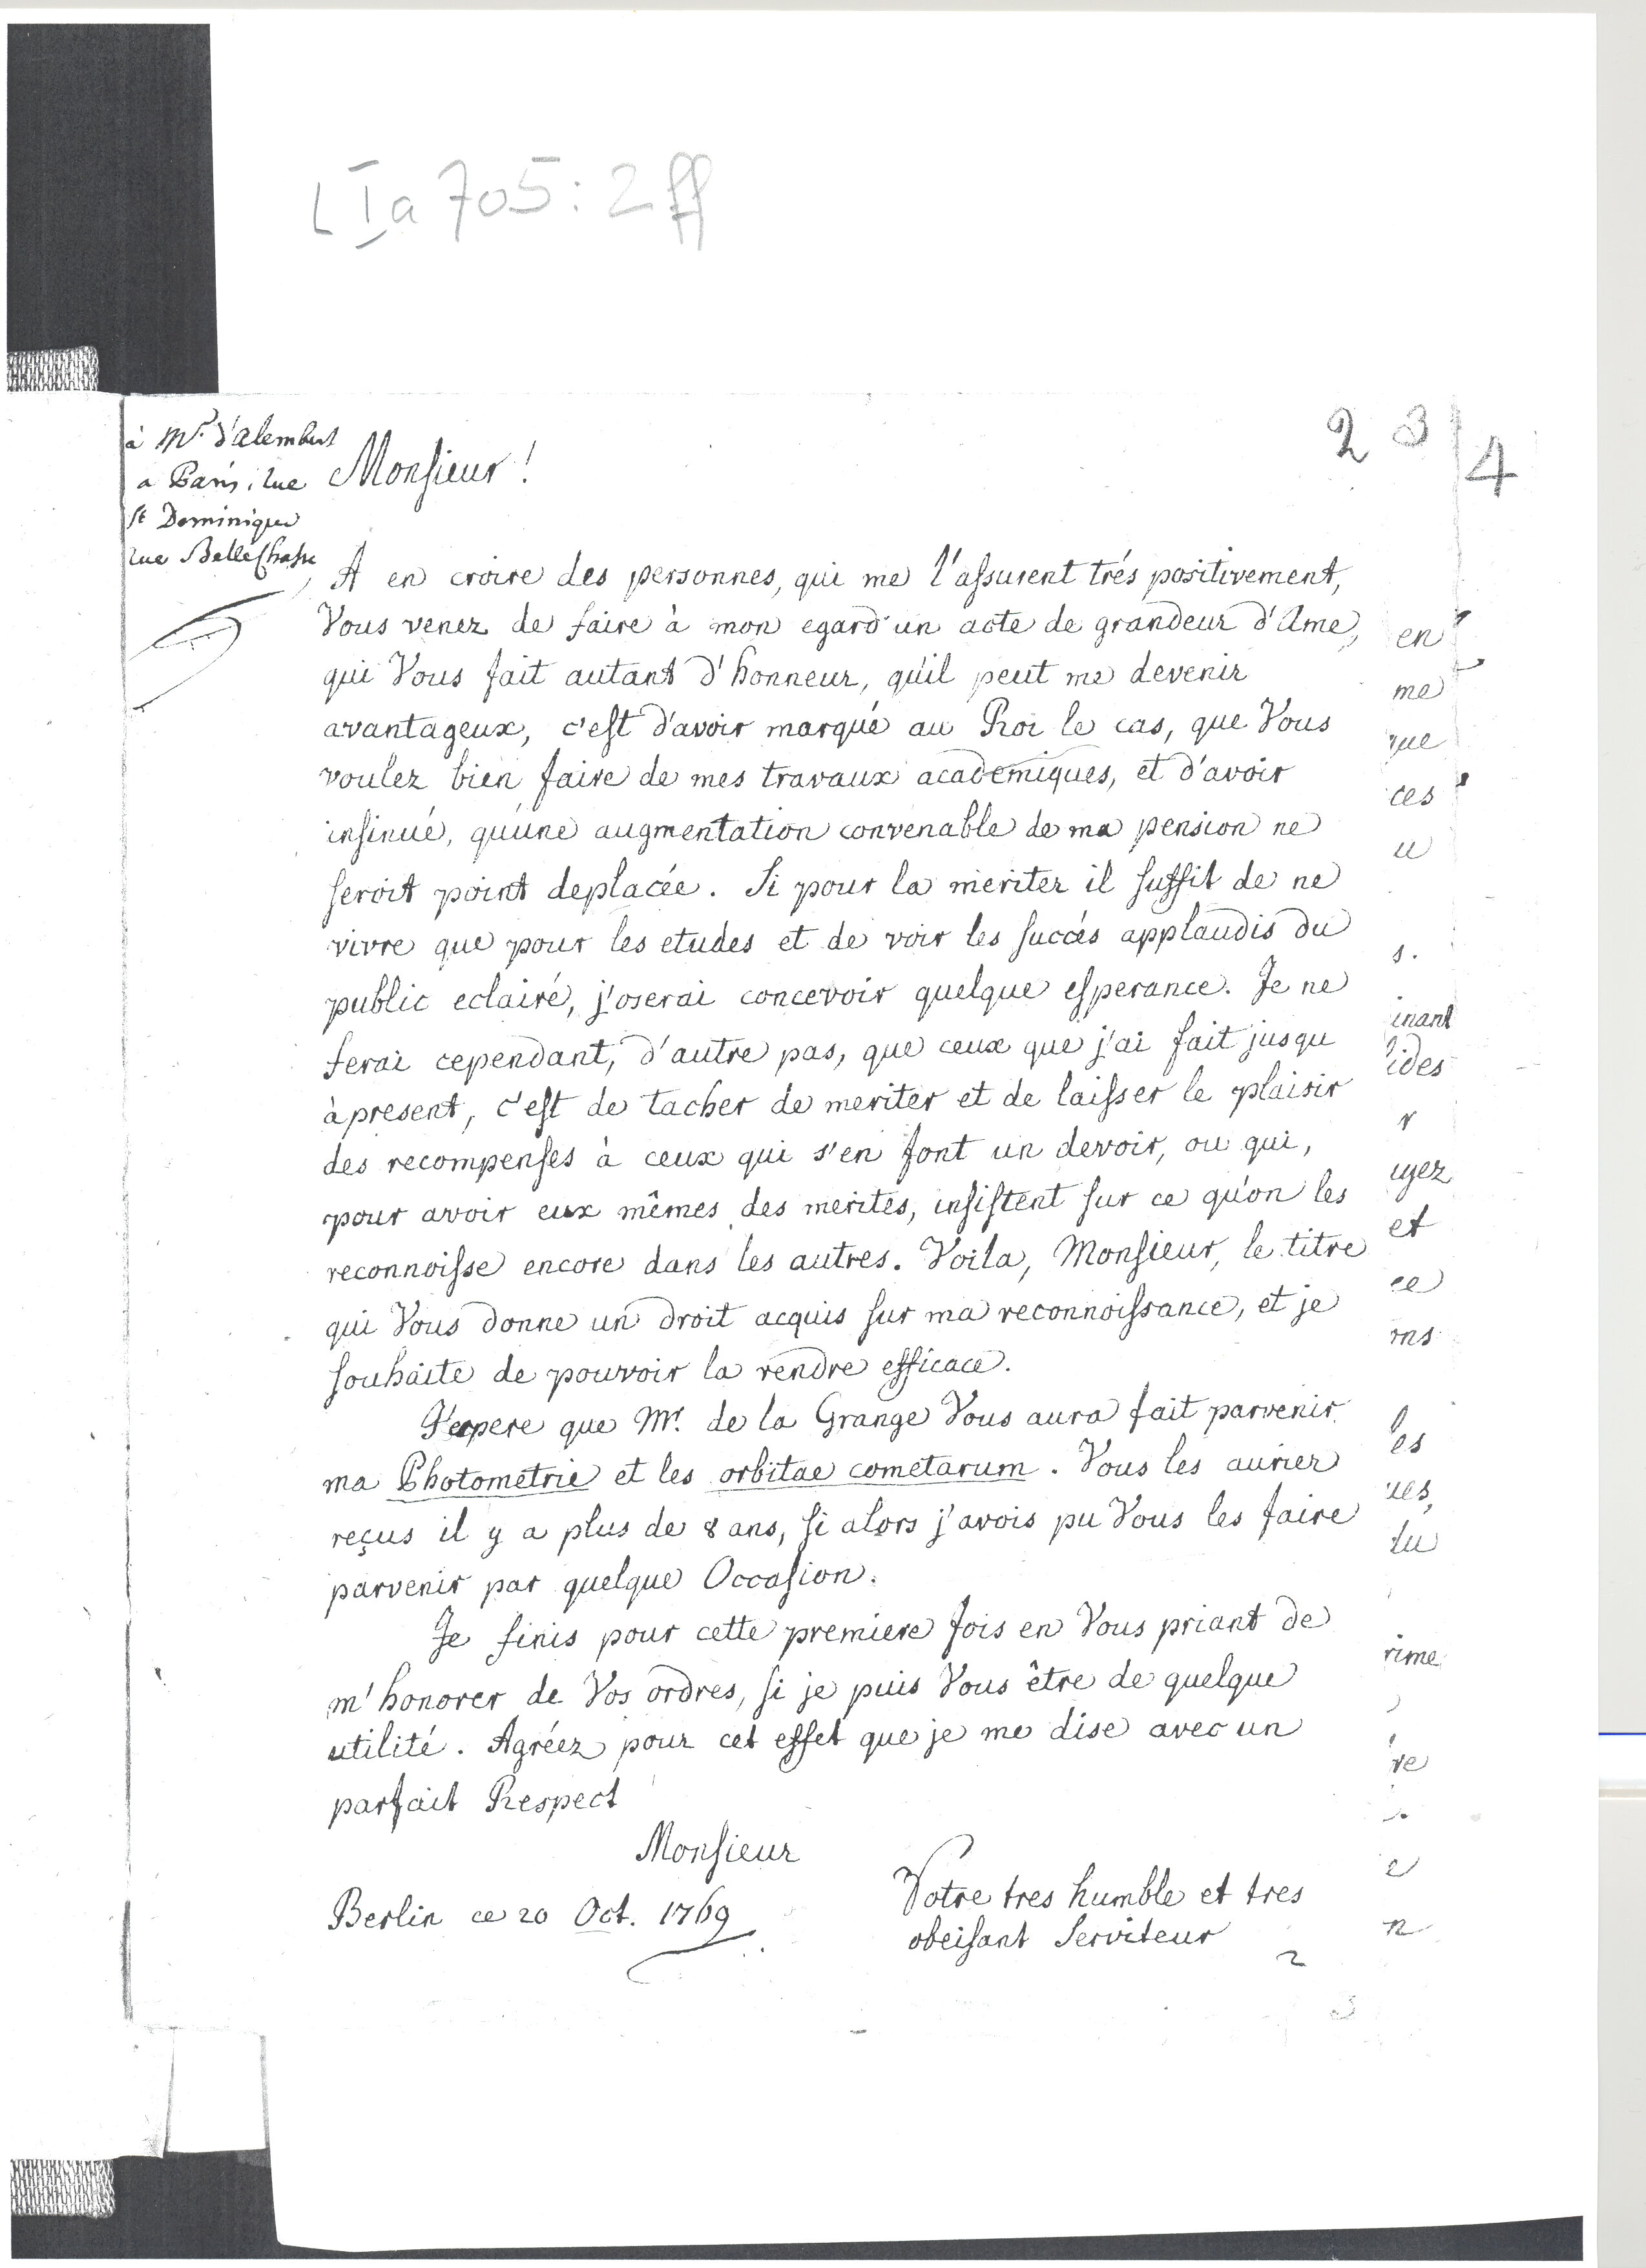 L I a 705: 2 ff
2 3 4
à Mr. d'alembert
a Paris, rue
St Dominique
rue BelleChasse
Monsieur!
A en croire des personnes, qui me l'assurent trés positivement,
Vous venez de faire à mon egard un acte de grandeur d'Ame,
qui Vous fait autant d'honneur, qu'il peut me devenir
avantageux, c'est d'avoir marqué au Roi le cas, que Vous
voulez bien faire de mes travaux academiques, et d'avoir
insinué, qu'une augmentation convenable de ma pension ne
seroit point deplacée. Si pour la meriter il suffit de ne
vivre que pour les etudes et de voir les succés applaudis du
public eclairé, j'oserai concevoir quelque esperance. Je ne
ferai cependant, d'autre pas, que ceux que j'ai fait jusqu
àpresent, c'est de tacher de meriter et de laisser le plaisir
des recompenses à ceux qui s'en font un devoir, ou qui,
pour avoir eux mêmes des merites, insistent sur ce qu'on les
reconnoisse encore dans les autres. Voila, Monsieur, le titre
qui Vous donne un droit acquis sur ma reconnoissance, et je
souhaite de pouvoir la rendre efficace.
J'espere que Mr. de la Grange Vous aura fait parvenir
ma Photometrie et les orbitae cometarum. Vous les auriez
reçus il y a plus de 8 ans, si alors j'avois pu Vous les faire
parvenir par quelque Occasion.
Je finis pour cette premiere fois en Vous priant de
m'honorer de Vos ordres, si je puis Vous être de quelque
utilité. Agréez pour cet effet que je me dise avec un
parfait Respect
Monsieur
Berlin ce 20 Oct. 1769
Votre tres humble et tres
obeisant Serviteur
en
me
que
ces
u
s.
inant
ides
r
uyez
et
ce
ons
les
ues,
du
rime
re
e
n